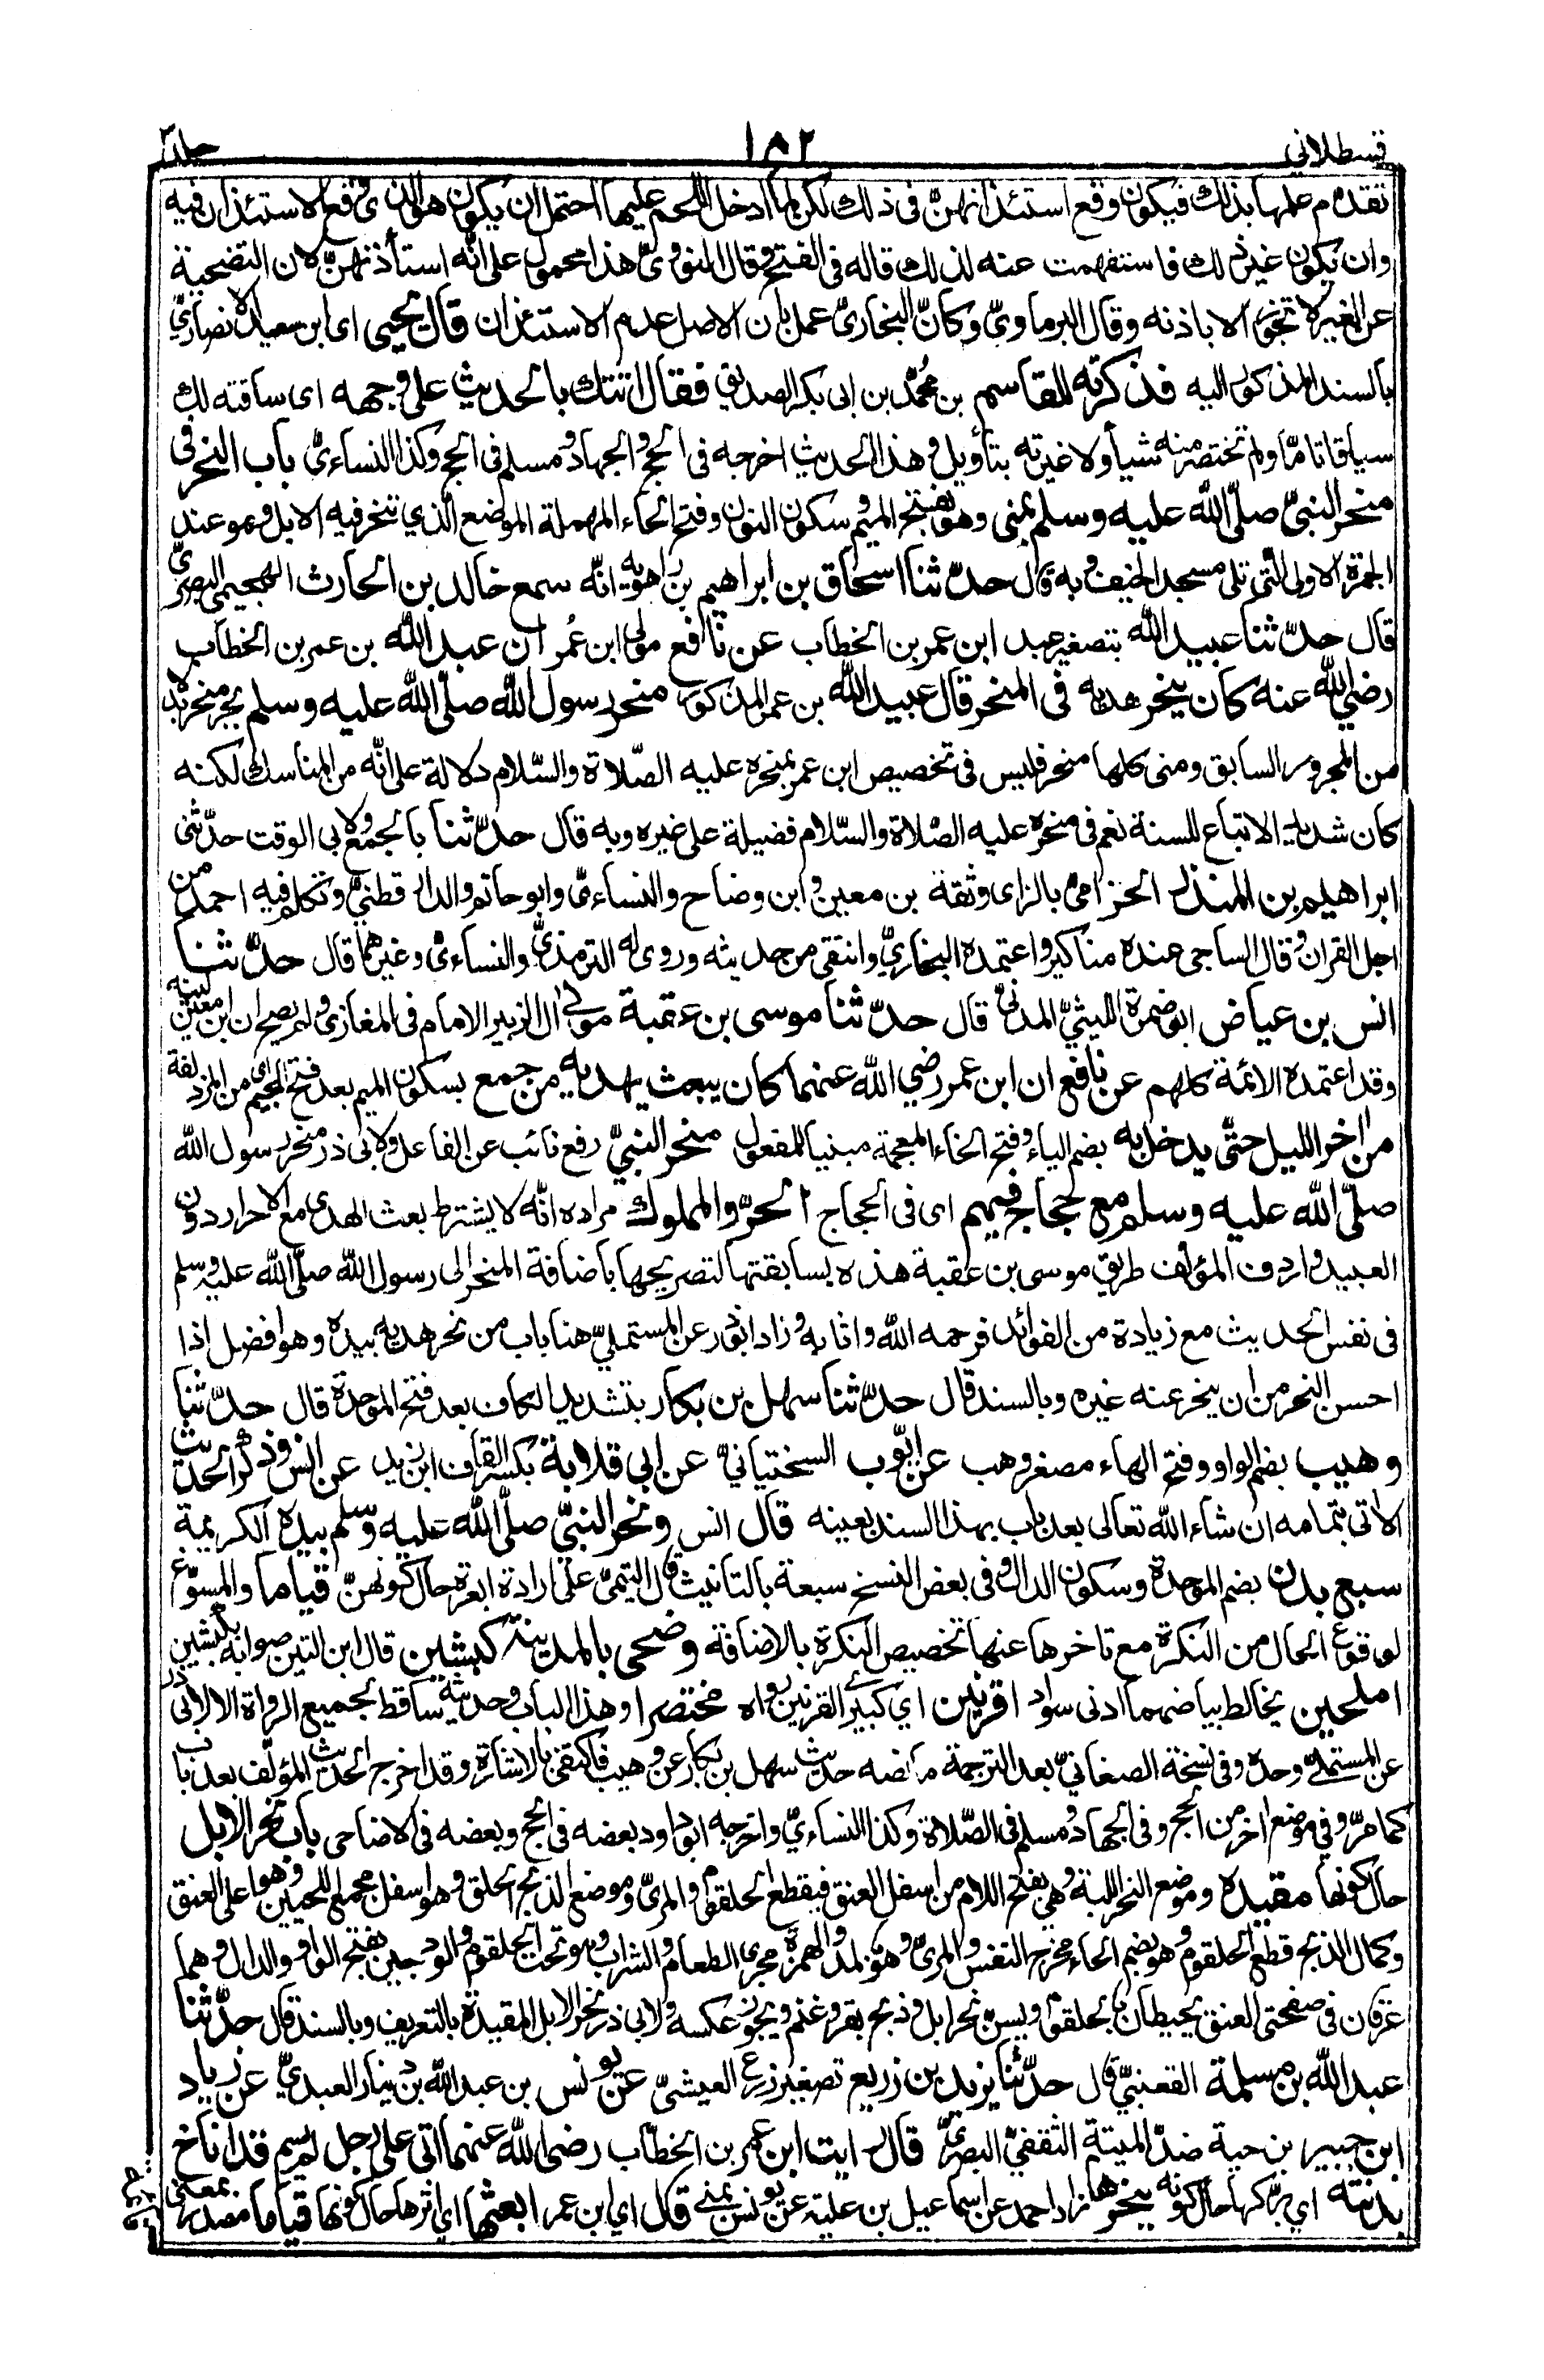 قسطلاني ١٥٢ جلد٣
تقدم علمها بذلك فيكون وقع استئذانهن في ذلك لكن لما ادخل اللحم عليها احتمل ان يكون هو الذي وقع الاستئذان فيه
وان يكون غير ذلك فاستفهمت عنه لذلك قاله في الفتح وقال النووي هذا محمول على انه استأذنهن لان التضحية
عن الغير لا تجوز الا باذنه وقال البرماوي وكأن البخاري عمل بان الاصل عدم الاستئذان قال يحيى اي ابن سعيد الانصاري
بالسند المذكور اليه فذكرته للقاسم بن محمد بن ابي بكر الصديق فقال اتتك بالحديث على وجهه اى ساقته لك
سياقا تاما ولم تختصر منه شيأ ولا غيرته بتأويل وهذا الحديث اخرجه في الحج والجهاد ومسلم في الحج وكذا النساءي باب النحر في
منحر النبي صلى الله عليه وسلم بمنى وهو بفتح الميم وسكون النون وفتح الحاء المهملة الموضع الذي تنحر فيه الابل وهو عند
الجمرة الاولى التي تلي مسجد الخيف وبه قال حدثنا اسحاق بن ابراهيم بن راهويه انه سمع خالد بن الحارث الهجيمي البصري
قال حدثنا عبيد الله بتصغير عبد ابن عمر بن الخطاب عن نافع مولى ابن عمر ان عبد الله بن عمر بن الخطاب
رضي الله عنه كان ينحر هديه في المنحر قال عبيد الله بن عمر المذكور منحر رسول الله صلى الله عليه وسلم بجر منحر بدلا
من المجرور السابق ومنى كلها منحر فليس في تخصيص ابن عمر بمنحره عليه الصلاة والسلام دلالة على انه من المناسك لكنه
كان شديد الاتباع للسنة نعم في منحره عليه الصلاة والسلام فضيلة على غيره وبه قال حدثنا بالجمع ولابي الوقت حدثني
ابراهيم بن المنذر الحزامي بالزاى وثقة بن معين وابن وضاح والنساءي وابو حاتم والدارقطني وتكلم فيه احمد من
اجل القرآن وقال الساجي عنده مناكير واعتمده البخاري وانتقى من حديثه وروى له الترمذي والنساءي وغيرهما قال حدثنا
انس بن عياض ابو ضمرة الليثي المدني قال حدثنا موسى بن عقبة مولى ال الزبير الامام في المغازي ولم يصح ان ابن معين لينه
وقد اعتمده الائمة كلهم عن نافع ان ابن عمر رضي الله عنهما كان يبعث بهديه من جمع بسكون الميم بعد فتح الجيم اى من المزدلفة
من اخر الليل حتى يدخل به بضم الياء وفتح الخاء المعجمة مبنيا للمفعول منحر النبي رفع نائب عن الفاعل ولابي ذر منحر رسول الله
صلى الله عليه وسلم مع حجاج فيهم اى في الحجاج الحر والمملوك مراده انه لا يشترط بعث الهدي مع الاحرار دون
العبيد واردف المؤلف طريق موسى بن عقبة هذه بسابقتها لتصريحها باضافة المنحر الى رسول الله صلى الله عليه وسلم
في نفس الحديث مع زيادة من الفوائد فرحمه الله واثابه وزاد ابو ذر عن المستملي هنا باب من نحر هديه بيده وهو افضل اذا
احسن النحر من ان ينحر عنه غيره وبالسند قال حدثنا سهل بن بكار بتشديد الكاف بعد فتح الموحدة قال حدثنا
وهيب بضم الواو وفتح الهاء مصغر وهب عن ايوب السختياني عن ابي قلابة بكسر القاف ابن زيد عن انس وذكر الحديث
الاتي بتمامه ان شاء الله تعالى بعد باب بهذا السند بعينه قال انس ونحر النبي صلى الله عليه وسلم بيده الكريمة
سبع بدن بضم الموحدة وسكون الدال وفي بعض النسخ سبعة بالتأنيث قال التيمي على ارادة ابعرة حال كونهن قياما والمسوغ
لوقوع الحال من النكرة مع تاخرها عنها تخصيص النكرة بالاضافة وضحى بالمدينة كبشين قال ابن التين صوابه بكبشين
املحين يخالط بياضهما ادنى سواد اقرنين اي كبيرى القرنين رواه مختصرا وهذا الباب وحديثه ساقط لجميع الرواة الا لابي ذر
عن المستملي وحده وفي نسخة الصغاني بعد الترجمة ما نصه حديث سهل بن بكار عن وهيب فاكتفى بالاشارة وقد اخرج الحديث المؤلف بعد باب
كما مر وفي موضع اخر من الحج وفي الجهاد ومسلم في الصلاة وكذا النساءي واخرجه ابو داود بعضه في الحج وبعضه في الاضاحي باب نحر الابل
حال كونها مقيدة وموضع النحر اللبة وهي بفتح اللام من اسفل العنق فيقطع الحلقوم والمرئ وموضع الذبح الحلق وهو اسفل مجمع اللحيين وهو اعلى العنق
وكمال الذبح قطع الحلقوم وهو بضم الحاء مخرج النفس والمرئ وهو بالمد والهمزة مجرى الطعام والشراب وهو تحت الحلقوم والودجين بفتح الواو والدال وهما
عرقان في صفحتي العنق يحيطان بالحلقوم ويسن نحر ابل وذبح بقر وغنم ويجوز عكسه ولابي ذر نحر الابل المقيدة بالتعريف وبالسند قال حدثنا
عبد الله بن مسلمة القعنبي قال حدثنا يزيد بن زريع تصغير زرع العيشي عن يونس بن عبد الله بن دينار العبدي عن زياد
ابن جبير بن حية ضد الميتة الثقفي البصري قال رايت ابن عمر بن الخطاب رضى الله عنهما اتى على رجل لم يسم قد اناخ
بدنته اي بركها حال كونه ينحرها زاد احمد عن اسماعيل بن علية عن يونس بمنى قال اي ابن عمر ابعثها اي اثرها حال كونها قياما مصدر بمعنى